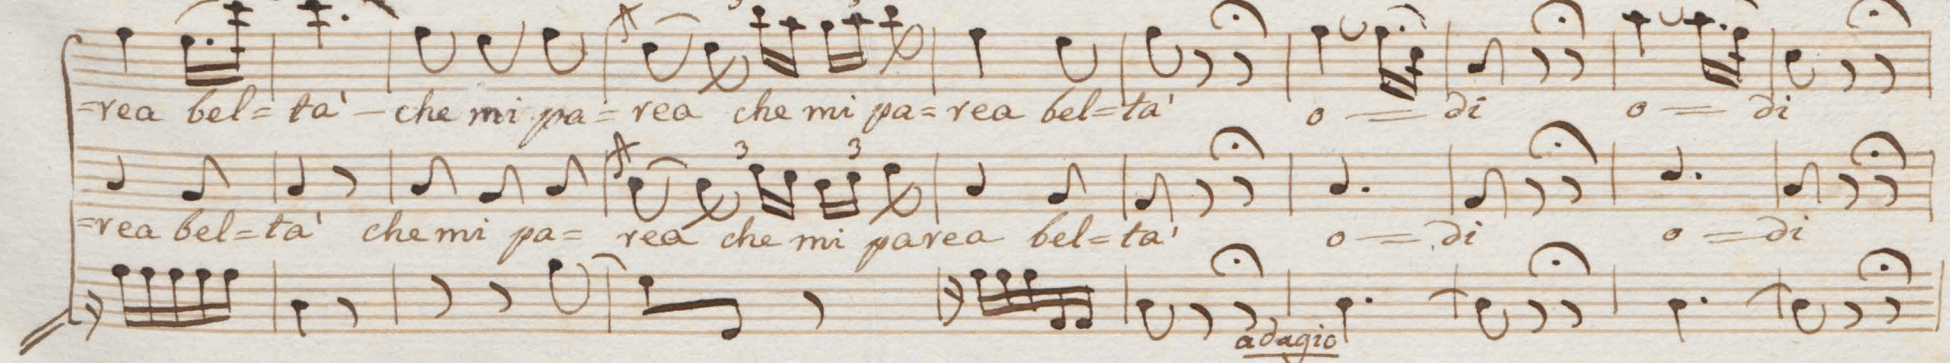 =rea bel=ta' — che mi pa=rea che mi pa=rea bel=ta' o = di o = di
3 3
=rea bel=ta' che mi pa= rea che mi parea bel=ta' o = di o = di
adagio